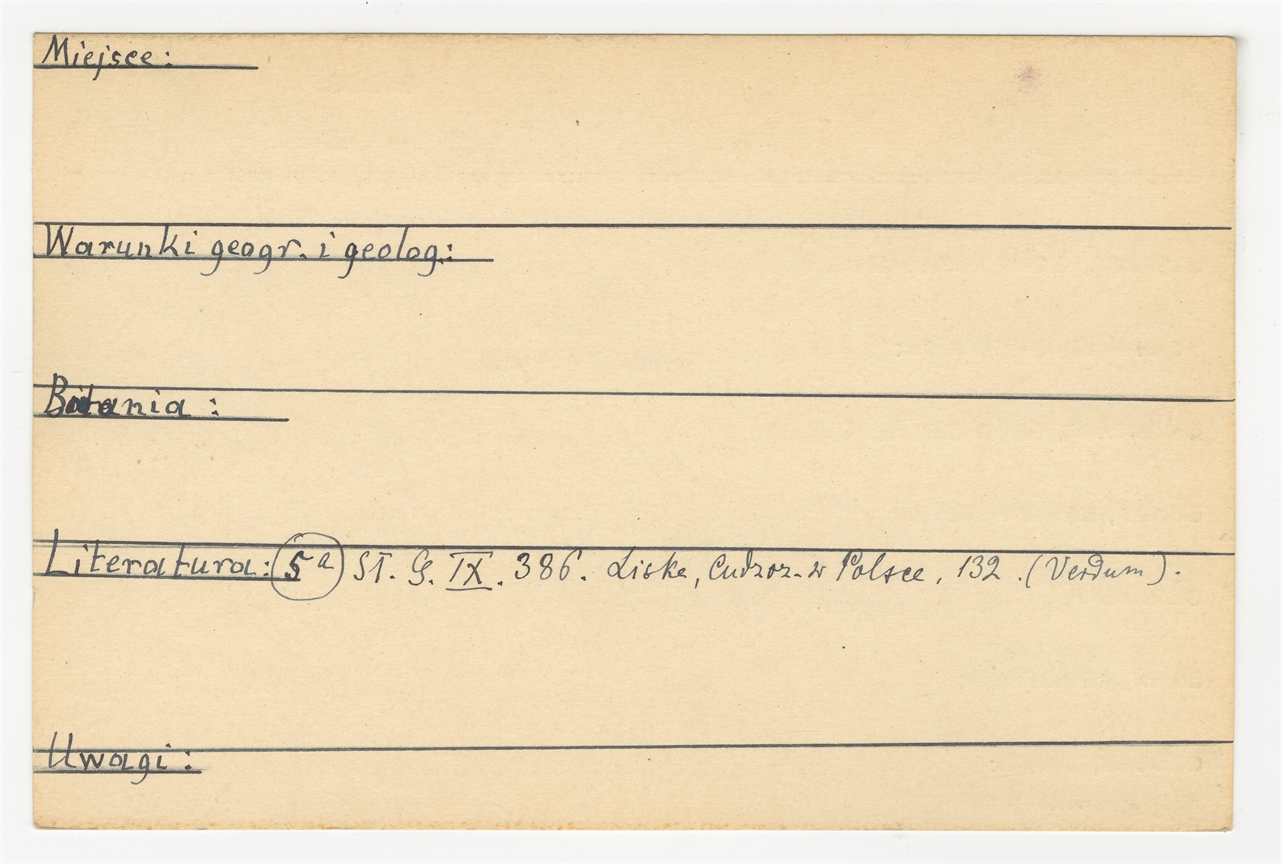 Miejsce:
Warunki geogr. i geolog:
Botania:
Literatura: 5a ST. G. IX. 386. Liske, Cudzoz. w Polsce, 132. (Verdum).
Uwagi: